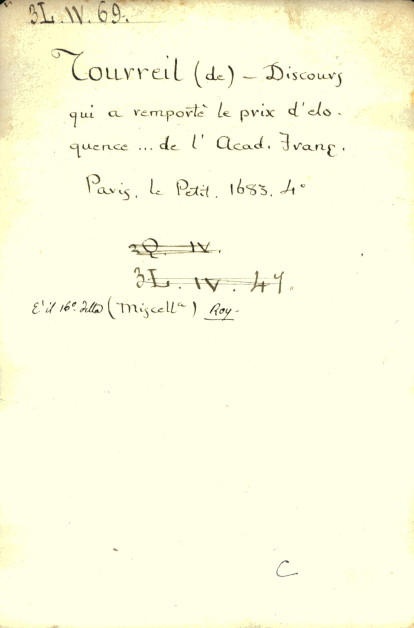 3L.IV.69.
Tourreil (de) – Discours
qui a remporté le prix d'elo-
quence ... de l' Acad. Franç.
Paris. le Petit. 1683. 4°
3Q. IV.
3L. IV. 47.
E' il 16° della (Miscellª) Roy-
C